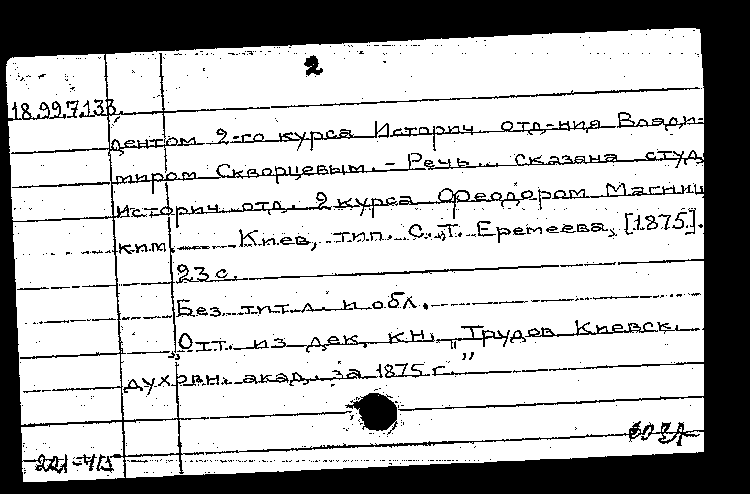 2
18.99.7.133.
дентом 2-го курса Историч. отд-ния Влади-
миром Скворцевым. - Речь... сказана студ.
историч. отд. 2 курса Феодором Магниц
ким. Киев, тип. С. Т. Еремеева, [1875].
23 с.
Без тит. л. и обл.
"Отт. из дек. кн. „Трудов Киевск.
духовн. акад. за 1875 г."
221-415